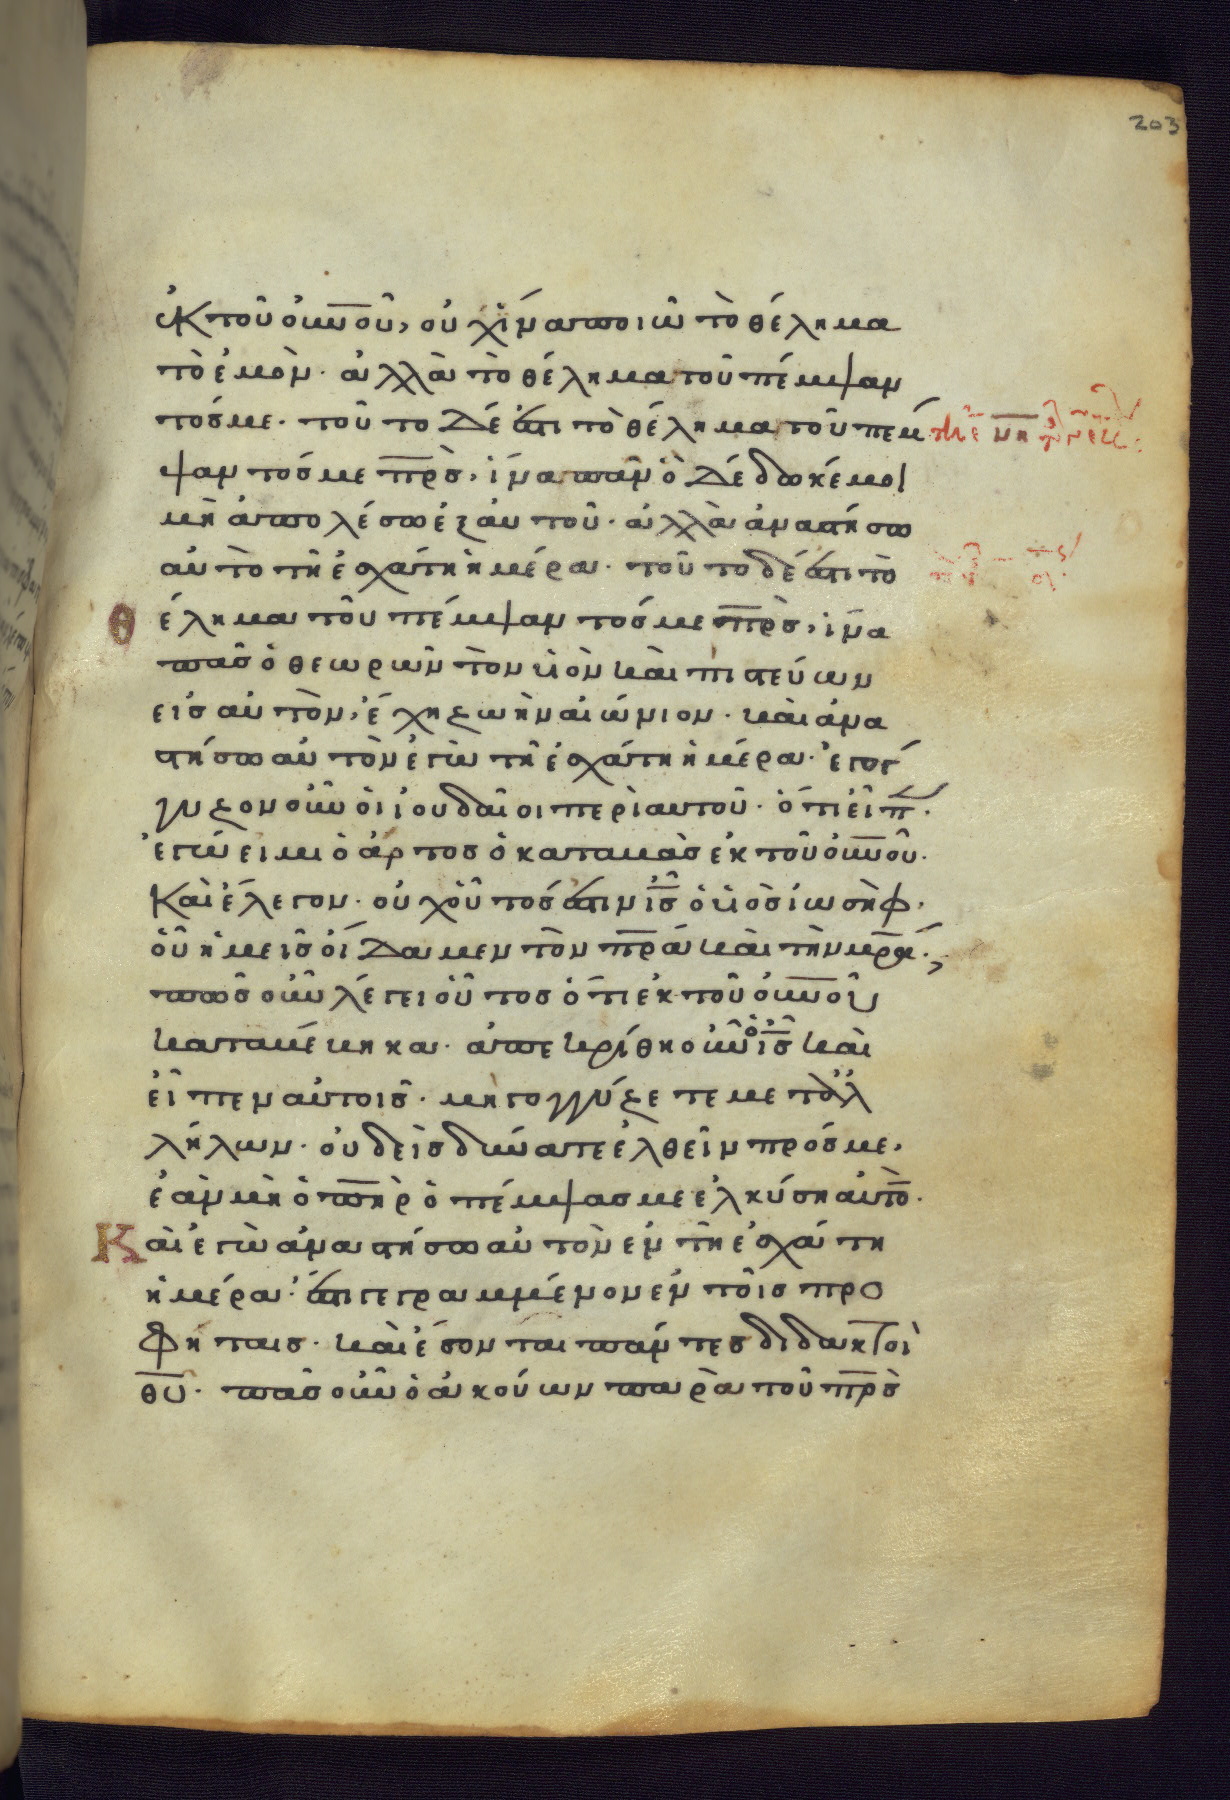 203
ἐκ τοῦ οὐνοῦ, οὐχ ἵνα ποιῶ τὸ θέλημα
τὸ ἐμὸν· ἀλλὰ τὸ θέλημα τοῦ πέμψαν
τόσ με· τοῦτο δέ ἐστι τὸ θέλημα τοῦ πέμ
ψαντόσ με πρσ, ἵνα πᾶν ὃ δέδωκέ μοι
μὴ ἀπολέσω ἐξ αὐτοῦ· ἀλλὰ ἀναστήσω
αὐτὸ τῆ ἐσχάτη ἡμέρα· τοῦτο δέ ἐστι τὸ
θέλημα τοῦ πέμψαντόσ με πρσ, ἵνα
πᾶσ ὁ θεωρῶν τὸν υἱὸν καὶ πιστεύων
εἰσ αὐτὸν, ἔχη ζωὴν αἰώνιον· καὶ ἀνα
στήσω αὐτὸν ἐγὼ τῆ ἐσχάτη ἡμέρα· ἐγόγ
γυζον οὖν οἱ ἰουδαῖοι περὶ αυτοῦ· ὅτι εἶπ·
ἐγώ ειμι ὁ ἄρτοσ ὁ καταβὰσ εκ τοῦ οὐνοῦ·
Καὶ ἔλεγον· οὐχ οὗτόσ ἐστιν ἰσ ὁ υἱὸσ ἰωσὴφ·
οὗ ἡμεῖσ οἴδαμεν τὸν πρα καὶ τὴν μρα·;
πῶσ οὖν λέγει οὗτοσ ὅτι ἐκ τοῦ οὐνοῦ
καταβέβηκα· ἀπεκρίθη οὖν ὁ ἰσ καὶ
εἶπεν αὐτοῖσ· μὴ γογγύζετε μετ ἀλ
λήλων· οὐδεὶσ δύναται ἐλθεῖν πρόσ με,
ἐὰν μὴ ὁ πηρ ὁ πέμψασ με ἑλκύση αὐτο·
Καὶ ἐγὼ ἀναστήσω αὐτὸν ἐν τῆ ἐσχάτη
ἡμέρα· ἔστι γεγραμμένον ἐν τοῖσ προ
φήταισ· καὶ ἔσονται πάντεσ διδακτοὶ
θυ· πᾶσ οὖν ὁ ἀκούων παρὰ τοῦ πρσ